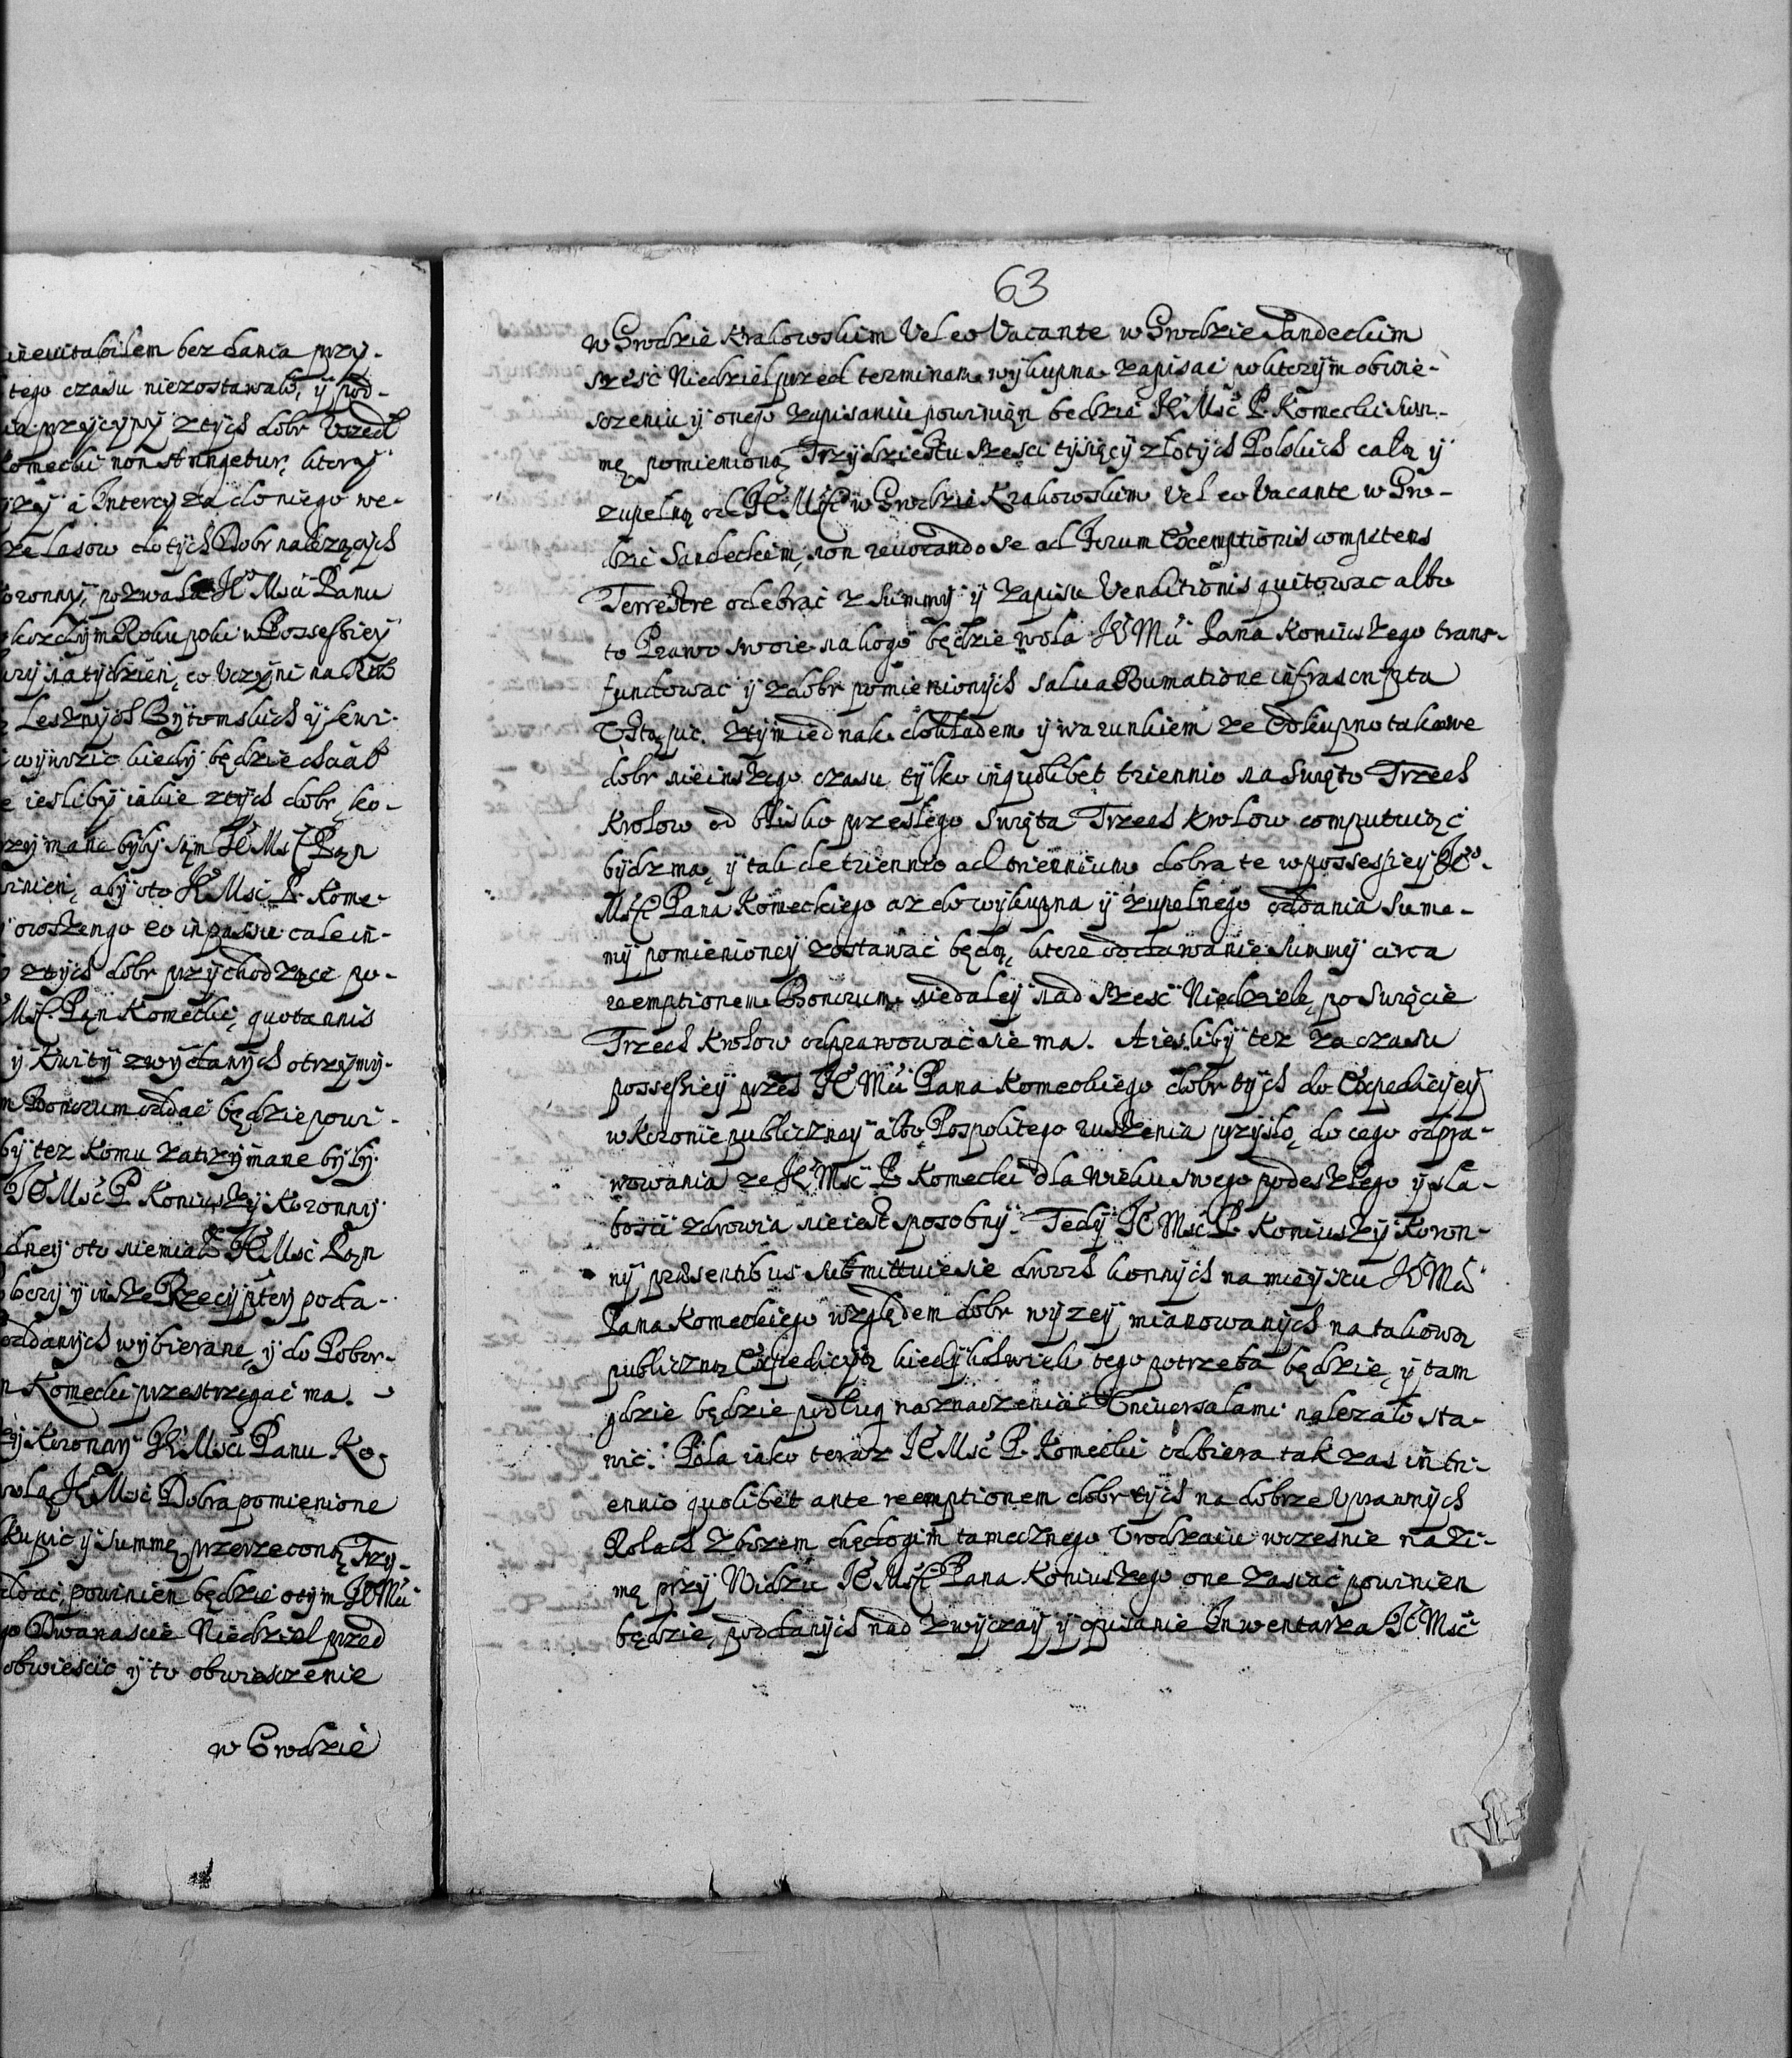 inevitabilem bez dania przy-
tego czasu niezostawało, y pod-
przyczyny z tych dobr Vszedł
Komecki non stringetur, ktory
a Intercyza do niego we-
ze lasow do tych Dobr nalezących
oronny, pozwala JE Msci Panu
kozdym Roku poki w Possessiey
na tydzien, co Vczyni na Rok
Lesznych Bytomskich y
wywozic kiedy będzie chciał
iesliby iakie z tych dobr ko-
rzymane były sam JE Msc Pan
winien, aby oto JE Msc P. Kome-
eo in passu całe in-
z tych dobr przychodzące po-
Msc Pan Komecki, quotannis
y Kwity zwydanych otrzymy-
Bonorum oddac będzie powi-
by tez Komu zatrzymane były
JE Msc P Koniuszy Koronny
dney oto niemiał JE Msc Pan
bory y insze Rzeczyptey poda-
oddanych wybierane, y do Pobor-
Komecki przestrzegac ma.
y Koronny JE Msci Panu Ko-
wolą JE Msci Dobra pomienione
kupic y summę przerzeconą Trzy-
ddac, powinien będzie otym JE Mci
Dwanascie Niedziel przed
obwiescic y to obwieszczenie
w Grodzie
63
w Grodzie Krakowskim Vel eo Vacante w Grodzie Sandeckim
szesc Niedziel przed terminem wykupna zapisac po ktorym obwie-
szczeniu y onego zapisaniu powinien będzie JE Msc P. Komecki Sum-
mę pomienioną Trzydziestu szesci tysięcy złotych Polskich całą y
zupełną od JE Msci w Grodzie Krakowskim Vel eo Vacante w Gro-
dzie Sandeckim, non revocando se ad Forum Exemptionis competens
Terrestre odebrac z Summy y Zapisu Venditionis quitowac albo
to Prawo swoie na kogo będzie wola JE Mci Pana Koniuszego trans-
fundowac y z dobr pomienionych salva Bumatione infrascripta
Vstąpic. z tym iednak dokładem y warunkiem ze Odkupno takowe
dobr nieinszego czasu tylko in quolibet triennio na Swięto Trzech
Krolow od blisko przeszłego Swięta Trzech Krolow computuiąc
bydz ma, y tak de triennio ad triennium dobra te w possessiey JE
Msc Pana Komeckiego az do wykupna y zupełnego oddania Sum-
my pomienioney zostawac będą, ktore oddawanie Summy circa
reemptionem Bonorum niedaley nad szesc Niedziel, po Swięcie
Trzech Krolow odprawowac sie ma. A iesliby tez za czasu
possessiey przes JE Mci Pana Komeckiego dobr tych do Expedicyey
w Koronie publiczney albo Pospolitego ruszenia przyszło, do czego odpra-
wowania ze JE Msc P Komecki dla wieku swego podeszłego y sła-
bosci zdrowia nieiest sposobny. Tedy JE Msc P. Koniuszy Koron-
ny præsentibus submittuie sie dwoch konnych na mieyscu JE Mci
Pana Komeckiego względem dobr wyzey mianowanych na takową
publiczną Expedicyą kiedykolwiek tego potrzeba będzie, y tam
gdzie będzie podług naznaczenia Vniversałami nalezało sta-
wic. Pola iako teraz JE Msc P. Komecki odbiera tak zas in tri-
ennio quolibet ante reemptionem dobr tych na dobrze Vprawnych
Rolach Zbozem chędogim tamecznego Vrodzaiu wczesnie na Zi-
mę przy Widzu JE Msc Pana Koniuszego one zasiac powinien
będzie, poddanych nad zwyczay y opisanie Inwentarza JE Msc